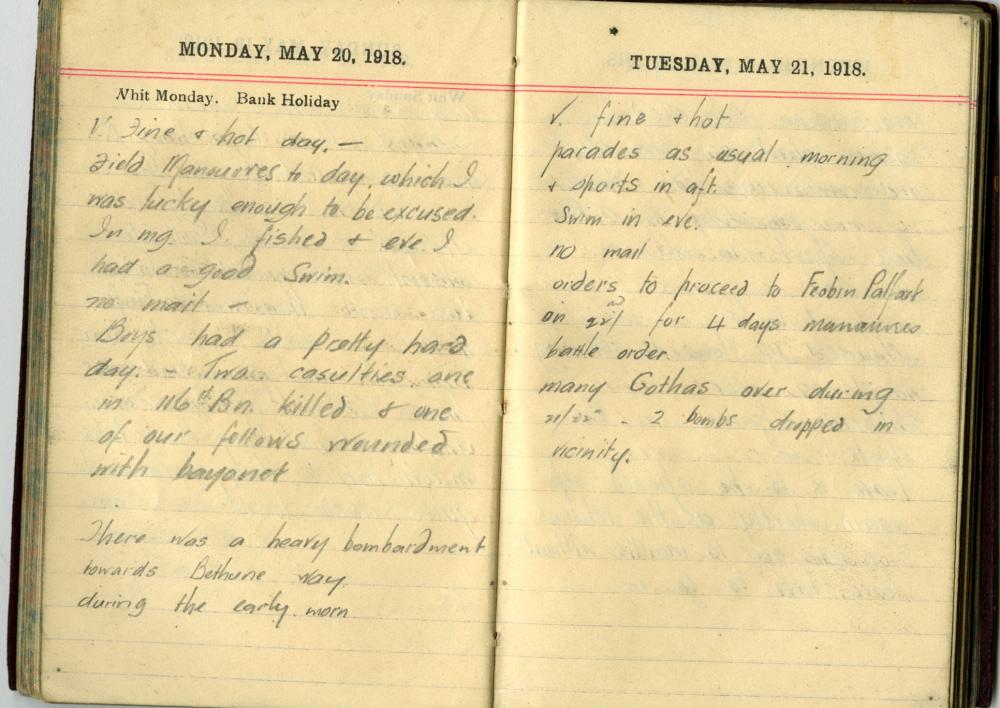 MONDAY, MAY 20, 1918.
Whit Monday. Bank Holiday
V. Fine & hot day. —
Field Manouvres to day, which I
was lucky enough to be excused.
In mg I fished & eve. I
had a good Swim.
no mail —
Boys had a pretty hard
day. — Two casulties one
in 116th Bn. killed & one
of our fellows wounded
with bayonet
There was a heavy bombardment
towards Bethune way
during the early morn
TUESDAY, MAY 21, 1918.
V. fine & hot
parades as usual morning
& sports in aft.
Swim in eve.
no mail
orders to proceed to Feobin Palfart
on 22nd for 4 days manouvres
battle order
many Gothas over during
21/22 - 2 bombs dropped in
vicinity.